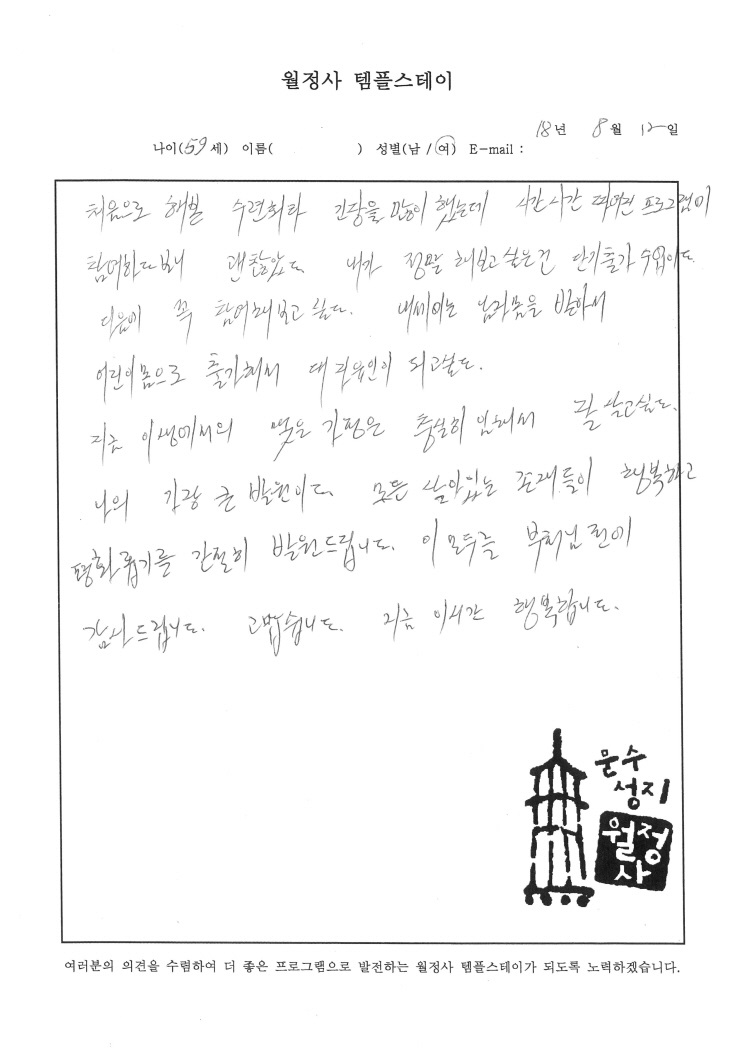 월정사 템플스테이
18년 8월 12일
나이(59세) 이름( ) 성별(남 / 여) E-mail :
처음으로 해본 수련회라 긴장을 많이 했는데 시간시간 짜여진 프로그램에
참여하다보니 괜찮았다 내가 정말 해보고 싶은건 단기출가 수업이다
다음에 꼭 참여해보고 싶다. 내세에는 남자몸을 받아서
어린이몸으로 출가해서 대자유인이 되고싶다.
지금 이생에서의 맺은 가정은 충실히 임해서 잘 살고싶다.
나의 가장 큰 발원이다 모든 살아있는 존재들이 행복하고
평화롭기를 간절히 발원드립니다. 이 모두를 부처님 전에
감사드립니다. 고맙습니다. 지금 이시간 행복합니다.
문수
성지
월정
사
여러분의 의견을 수렴하여 더 좋은 프로그램으로 발전하는 월정사 템플스테이가 되도록 노력하겠습니다.